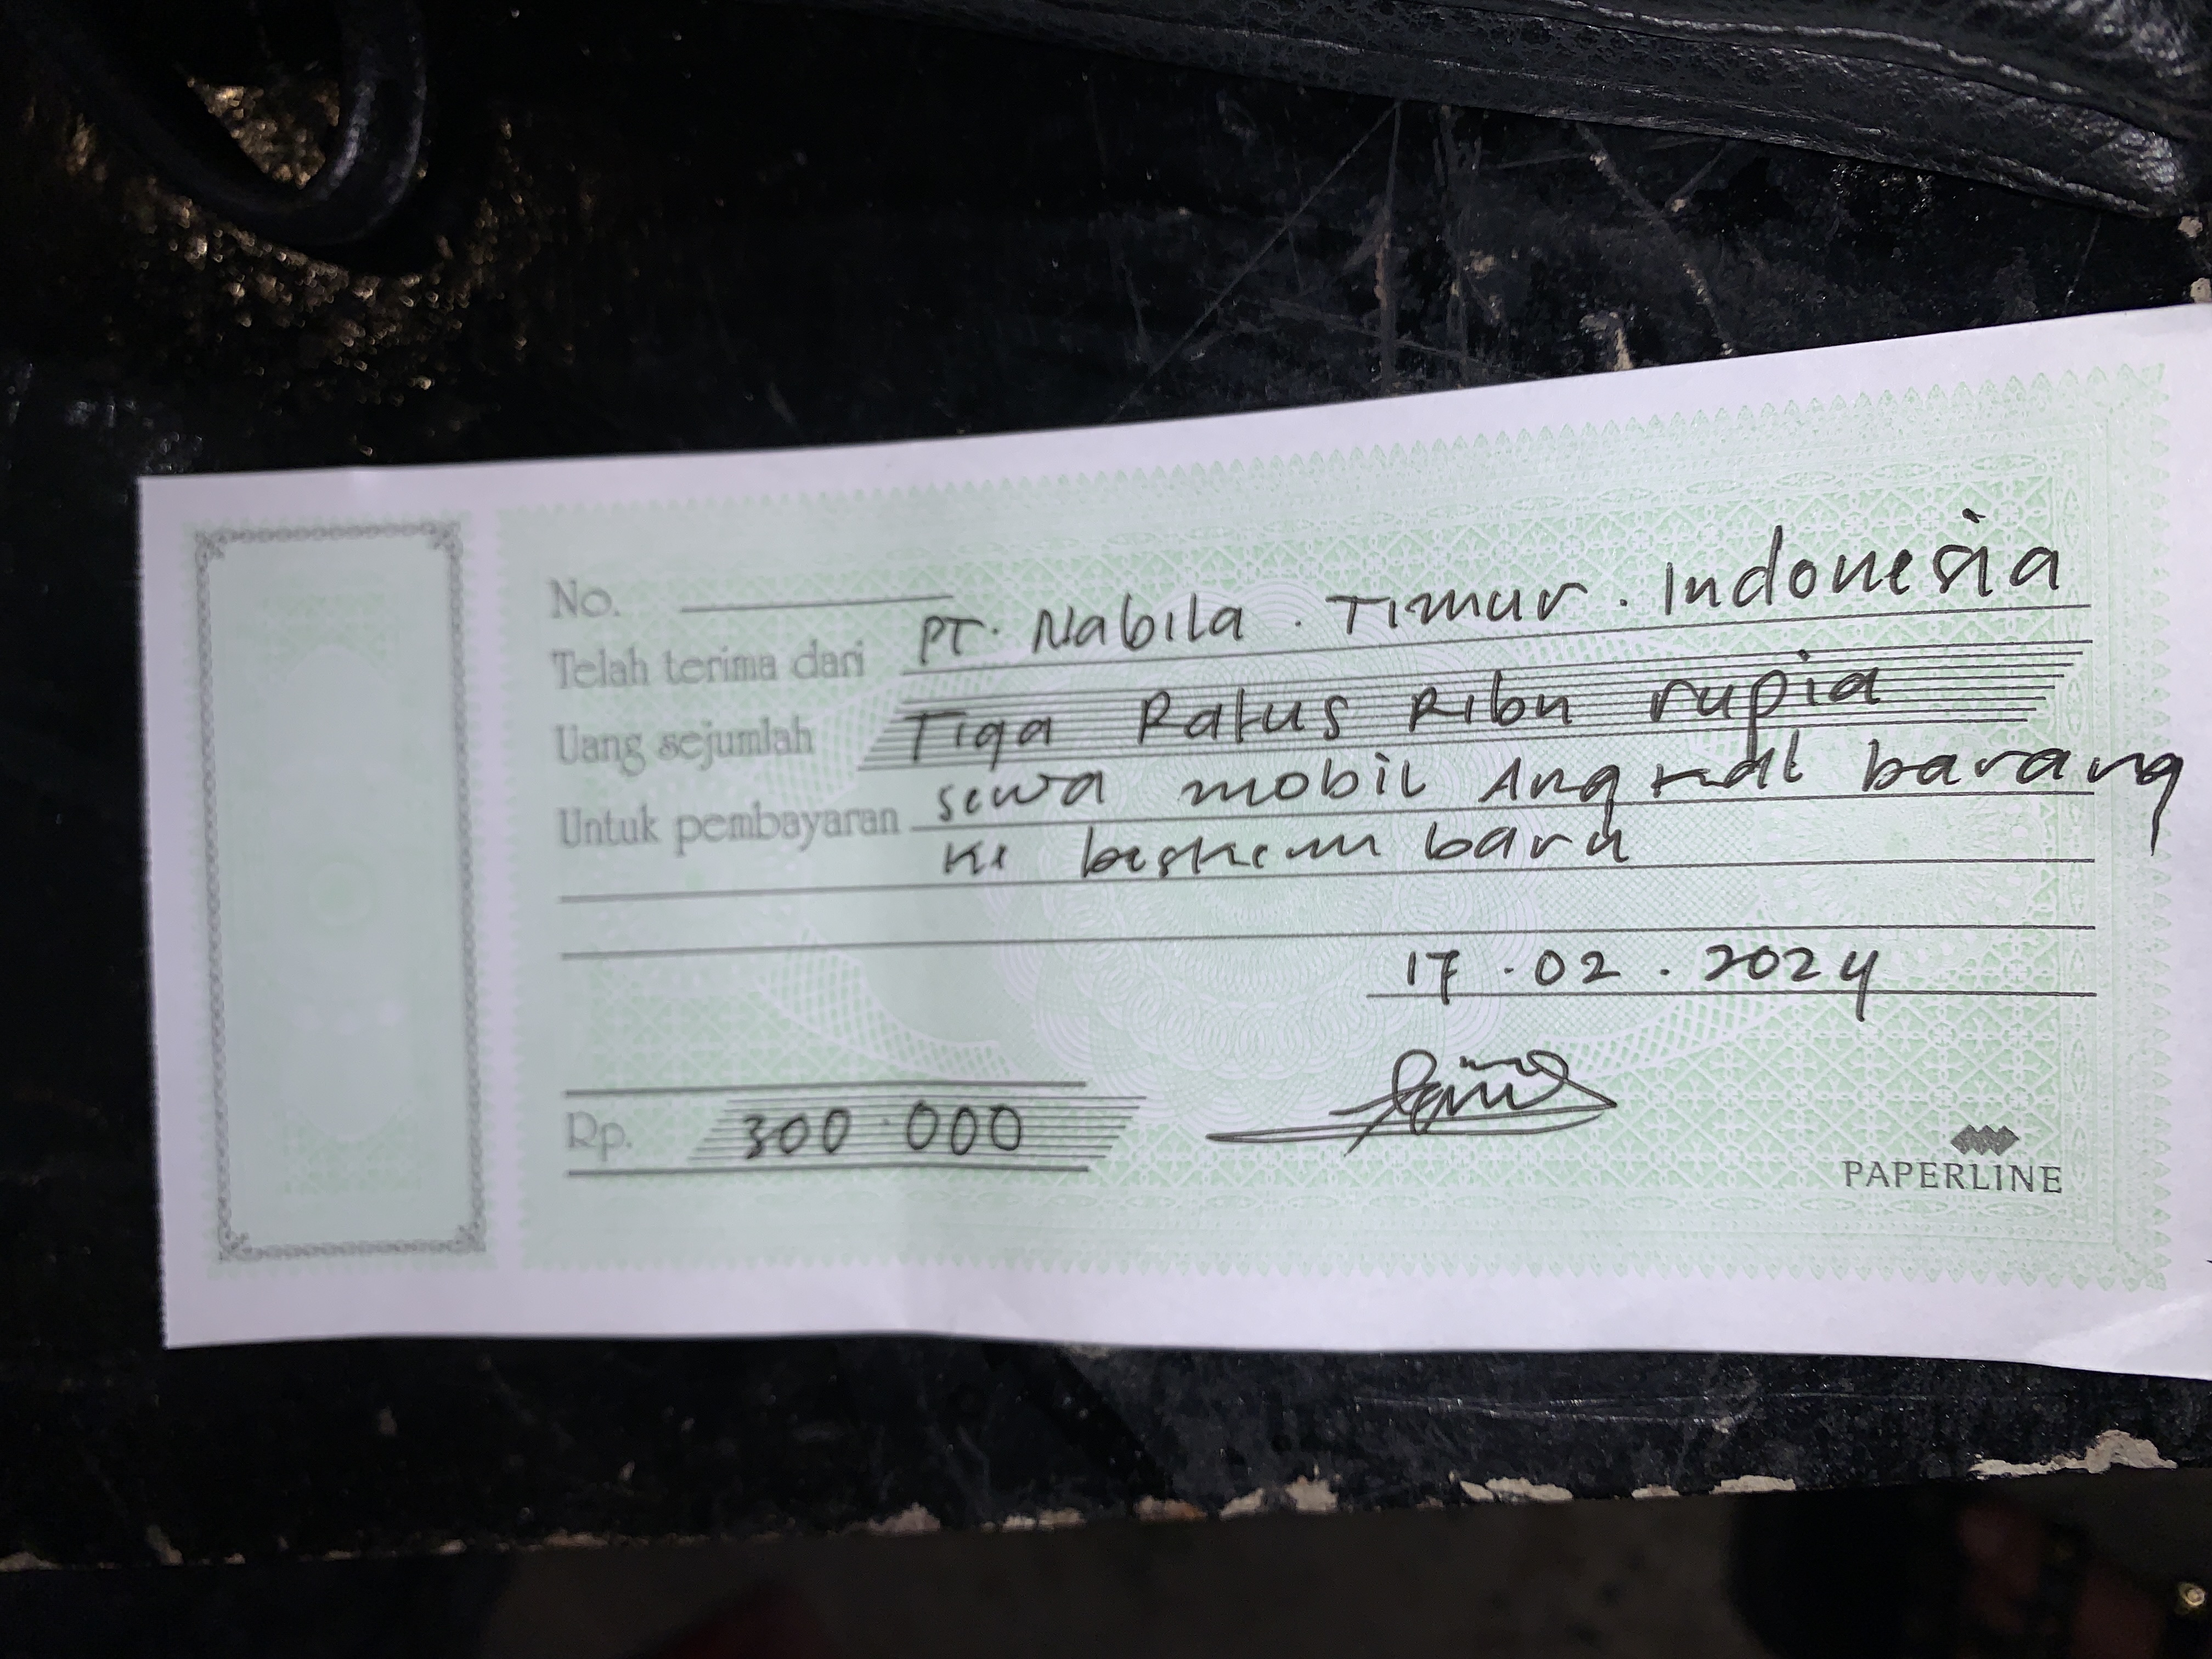 No.
Telah terima dari PT. Nabila. Timur. Indonesia
Uang sejumlah Tiga Ratus Ribu rupia
Untuk pembayaran sewa mobil barang
baru
17.02.2024
Rp. 300.000
PAPERLINE